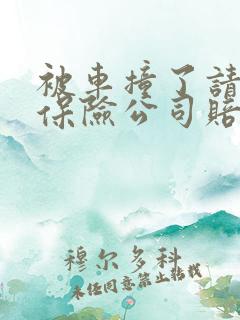 被車撞了請
保險公司賠
穆尔多科
未任同意禁止转载